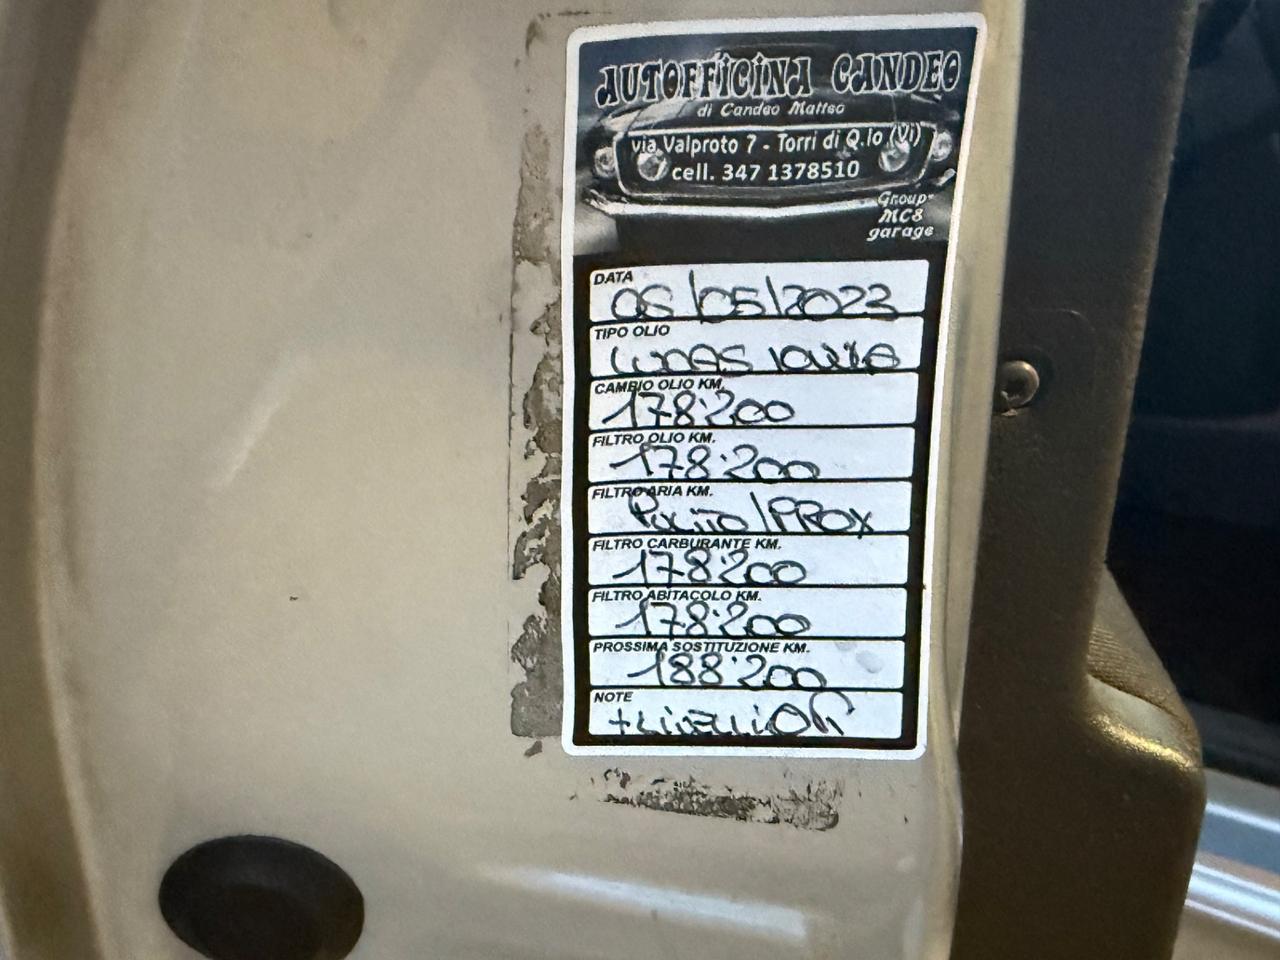 AUTOFFICINA CANDEO
di Candeo Matteo
via Valproto 7 - Torri di Q.lo (Vi)
cell. 347 1378510
Group
MC8
garage
DATA
05/05/2023
TIPO OLIO
LUCAS
CAMBIO OLIO KM.
178.200
FILTRO OLIO KM.
178.200
FILTRO ARIA KM.
PULITO/PROX
FILTRO CARBURANTE KM.
178.200
FILTRO ABITACOLO KM.
178.200
PROSSIMA SOSTITUZIONE KM.
188.200
NOTE
+LIVELLI OK